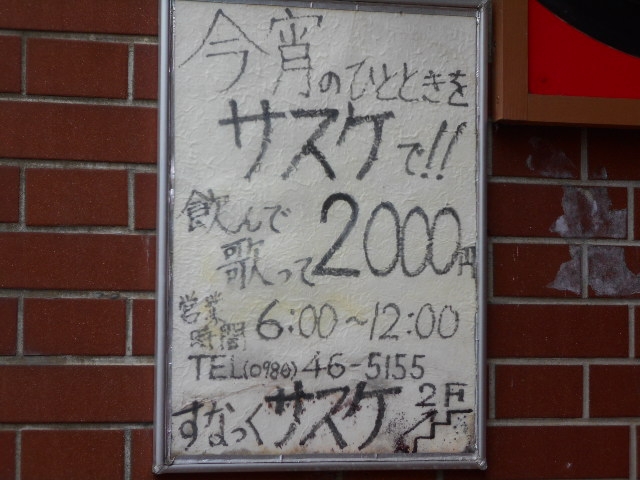 今宵のひとときを
サスケで!!
飲んで
歌って2000円
営業時間 6:00~12:00
TEL(0980)46-5155
すなっくサスケ 2F